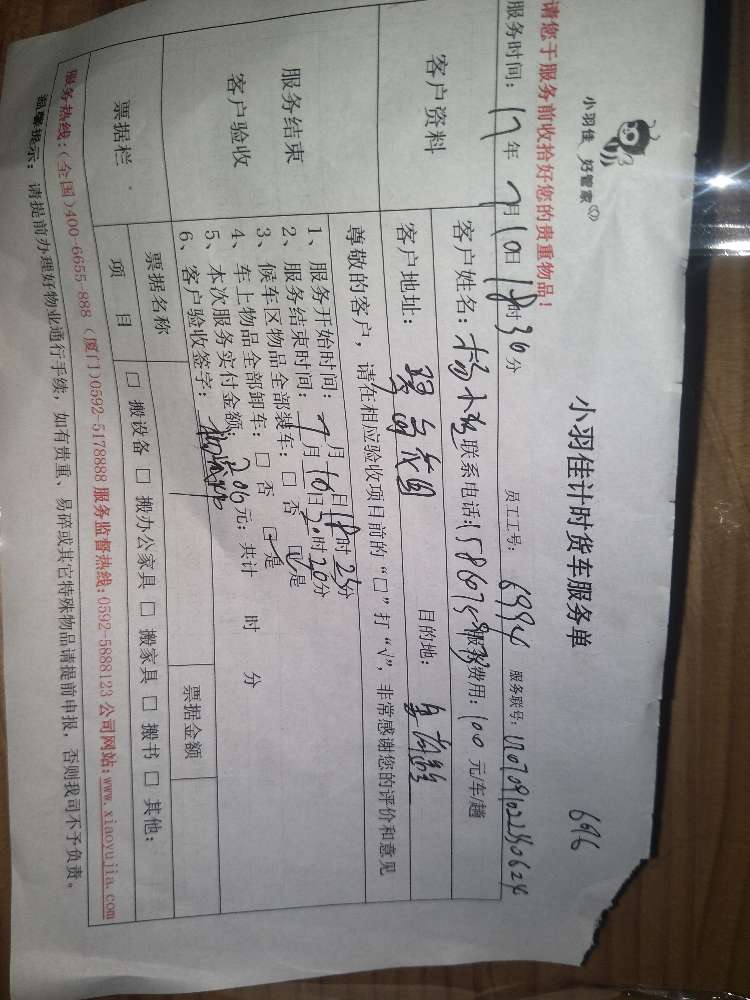 小羽佳 好管家
小羽佳计时货车服务单
696
请您于服务前收拾好您的贵重物品！
员工工号：6994 服务联号：
服务时间：17年7月10日18时30分
客户资料
客户姓名： 联系电话： 服务费用：100元/车/趟
客户地址： 目的地：
服务结束
客户验收
尊敬的客户，请在相应验收项目前的“□”打“√”，非常感谢您的评价和意见
1、服务开始时间：7月10日18时25分
2、服务结束时间：7月10日20时20分
3、候车区物品全部装车：□否 ☑是
4、车上物品全部卸车：□否 ☑是
5、本次服务实付金额：200元；共计 时 分
6、客户验收签字：
票据栏
票据名称 票据金额
项目 □搬设备 □搬办公家具 □搬家具 □搬书 □其他：
服务热线：（全国）400-6655-888（厦门）0592-5178888 服务监督热线：0592-5888123 公司网站：www.xiaoyujia.com
温馨提示：请提前办理好物业通行手续，如有贵重、易碎或其它特殊物品请提前申报，否则我司不予负责。